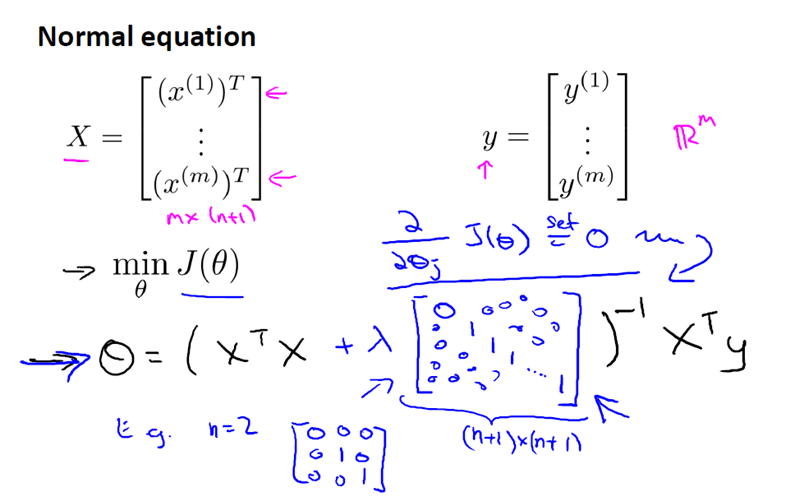 Normal equation
X = [ (x^(1))^T ⋮ (x^(m))^T ] ← ←
m × (n+1)
y = [ y^(1) ⋮ y^(m) ] ℝ^m
↑
∂/∂θ_j J(θ) set = 0
→ min_θ J(θ)
→ θ = ( X^T X + λ [ 0 0 0 0 0 0 1 0 0 1 0 0 1 0 0 0 .... 1 ] )^-1 X^T y
(n+1)×(n+1)
E.g. n=2 [ 0 0 0
0 1 0
0 0 1 ]